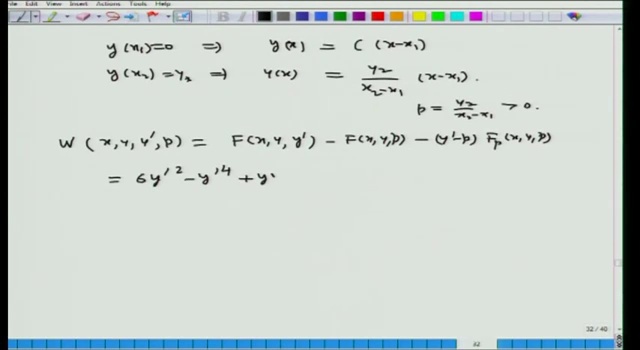 File Edit View Insert Actions Tools Help
y(x₁)=0 ⇒ y(x) = C (x-x₁)
y(x₂)=y₂ ⇒ y(x) = y₂/(x₂-x₁) (x-x₁).
p = y₂/(x₂-x₁) > 0.
W (x, y, y', p) = F(x, y, y') - F(x, y, p) - (y'-p) Fₚ(x, y, p)
= 6y'² - y'⁴ + y'
32 / 40
32